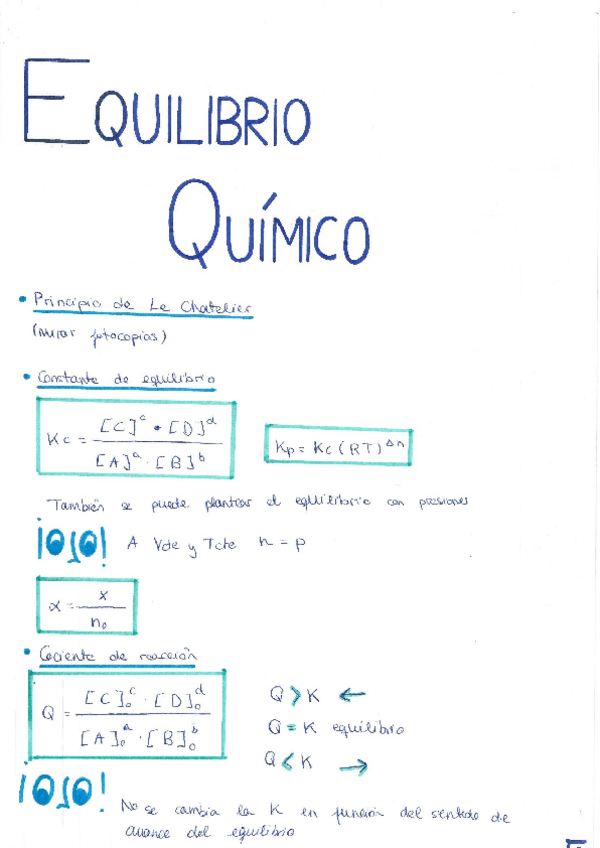 EQUILIBRIO
QUÍMICO
• Principio de Le Chatelier
(mirar fotocopias)
• Constante de equilibrio
Kc = [C]^c • [D]^d / [A]^a · [B]^b
Kp = Kc (RT)^Δn
También se puede plantear el equilibrio con presiones
¡OJO! A Vcte y Tcte n = p
α = x / n₀
• Cociente de reacción
Q = [C]₀^c · [D]₀^d / [A]₀^a · [B]₀^b
Q > K ←
Q = K equilibrio
Q < K →
¡OJO!
No se cambia la K en función del sentido de
avance del equilibrio